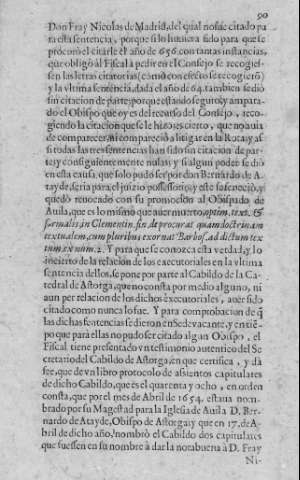 90
Don Fray Nicolas de Madrid, del qual no fue citado pa
ra esta sentencia, porque si lo huuiera sido para que se
procurò el citarle el año de 656. con tantas instancias,
que obligò al Fiscal à pedir en el Consejo se recogies-
sen las letras citatorias (como con efecto se recogierõ)
y la vltima sentencia, dada el año de 64. tambien se diò
sin citacion de parte; porque estando seguro, y ampara-
do el Obispo que oy es del recurso del Consejo, reco-
giendo la citacion que se hizo es cierto, que no auia
de comparecer, ni compareciò à litigar en la Rota; y as-
si todas las tres sentencias han sido sin citacion de par-
te; y consiguientemente nulas; y si algun poder se diò
en esta causa, que solo pudo ser por don Bernardo de A-
tayde, seria para el juizio possessorio, y este se feneciò, y
quedò reuocado con su promocion al Obispado de
Auila, que es lo mismo que auer muerto, optim. text. &
formalis in Clementin. fin. de procurat. quam doctrinam
textualem, cum pluribus exornat Barbos. ad dictum tex
tum ex num. 2. Y para que se conozca esta verdad, y lo
incierto de la relacion de los executoriales en la vltima
sentencia dellos, se pone por parte al Cabildo de la Ca-
tedral de Astorga, que no consta por medio alguno, ni
aun per relacion de los dichos executoriales, auer sido
citado como nunca lo fue. Y para comprobacion de q̃
las dichas sentencias se dieron en Sedevacante, y en tiẽ-
po que para ellas no pudo ser citado algun Obispo, el
Fiscal tiene presentado vn testimonio autentico del Se
cretario del Cabildo de Astorga, en que certifica, y dà
fee, que de vn libro protocolo de assientos capitulares
de dicho Cabildo, que es el quarenta y ocho, en orden
consta, que por el mes de Abril de 1654. estaua nom-
brado por su Magestad para la Iglesia de Auila D. Ber-
nardo de Atayde, Obispo de Astorga; y que en 17. de A-
bril de dicho año, nombrò el Cabildo dos capitulares
que fuessen en su nombre à dar la norabuena à D. Fray
Ni-